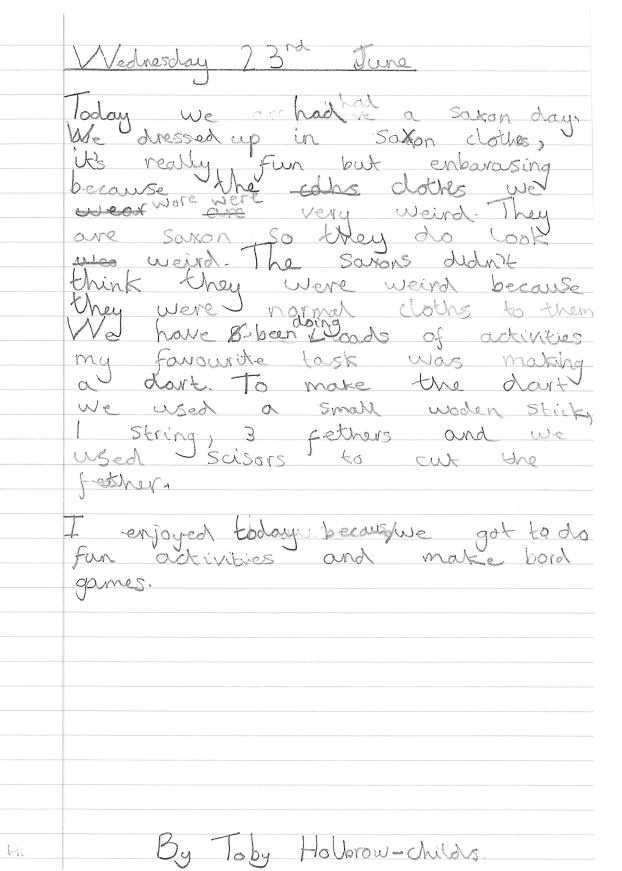 Wednesday 23rd June
Today we had had a saxon day.
We dressed up in Saxon clothes,
it's really fun but enbarasing
because the clothes we
wore were very weird. They
are saxon so they do look
weird. The saxons didn't
think they were weird because
they were normal cloths to them
We have been doing loads of activities
my favourite task was making
a dart. To make the dart
we used a small woden stick,
1 string, 3 fethers and we
used scisors to cut the
fether.
I enjoyed today because we got to do
fun activities and make bord
games.
Hi
By Toby Holbrow-childs.